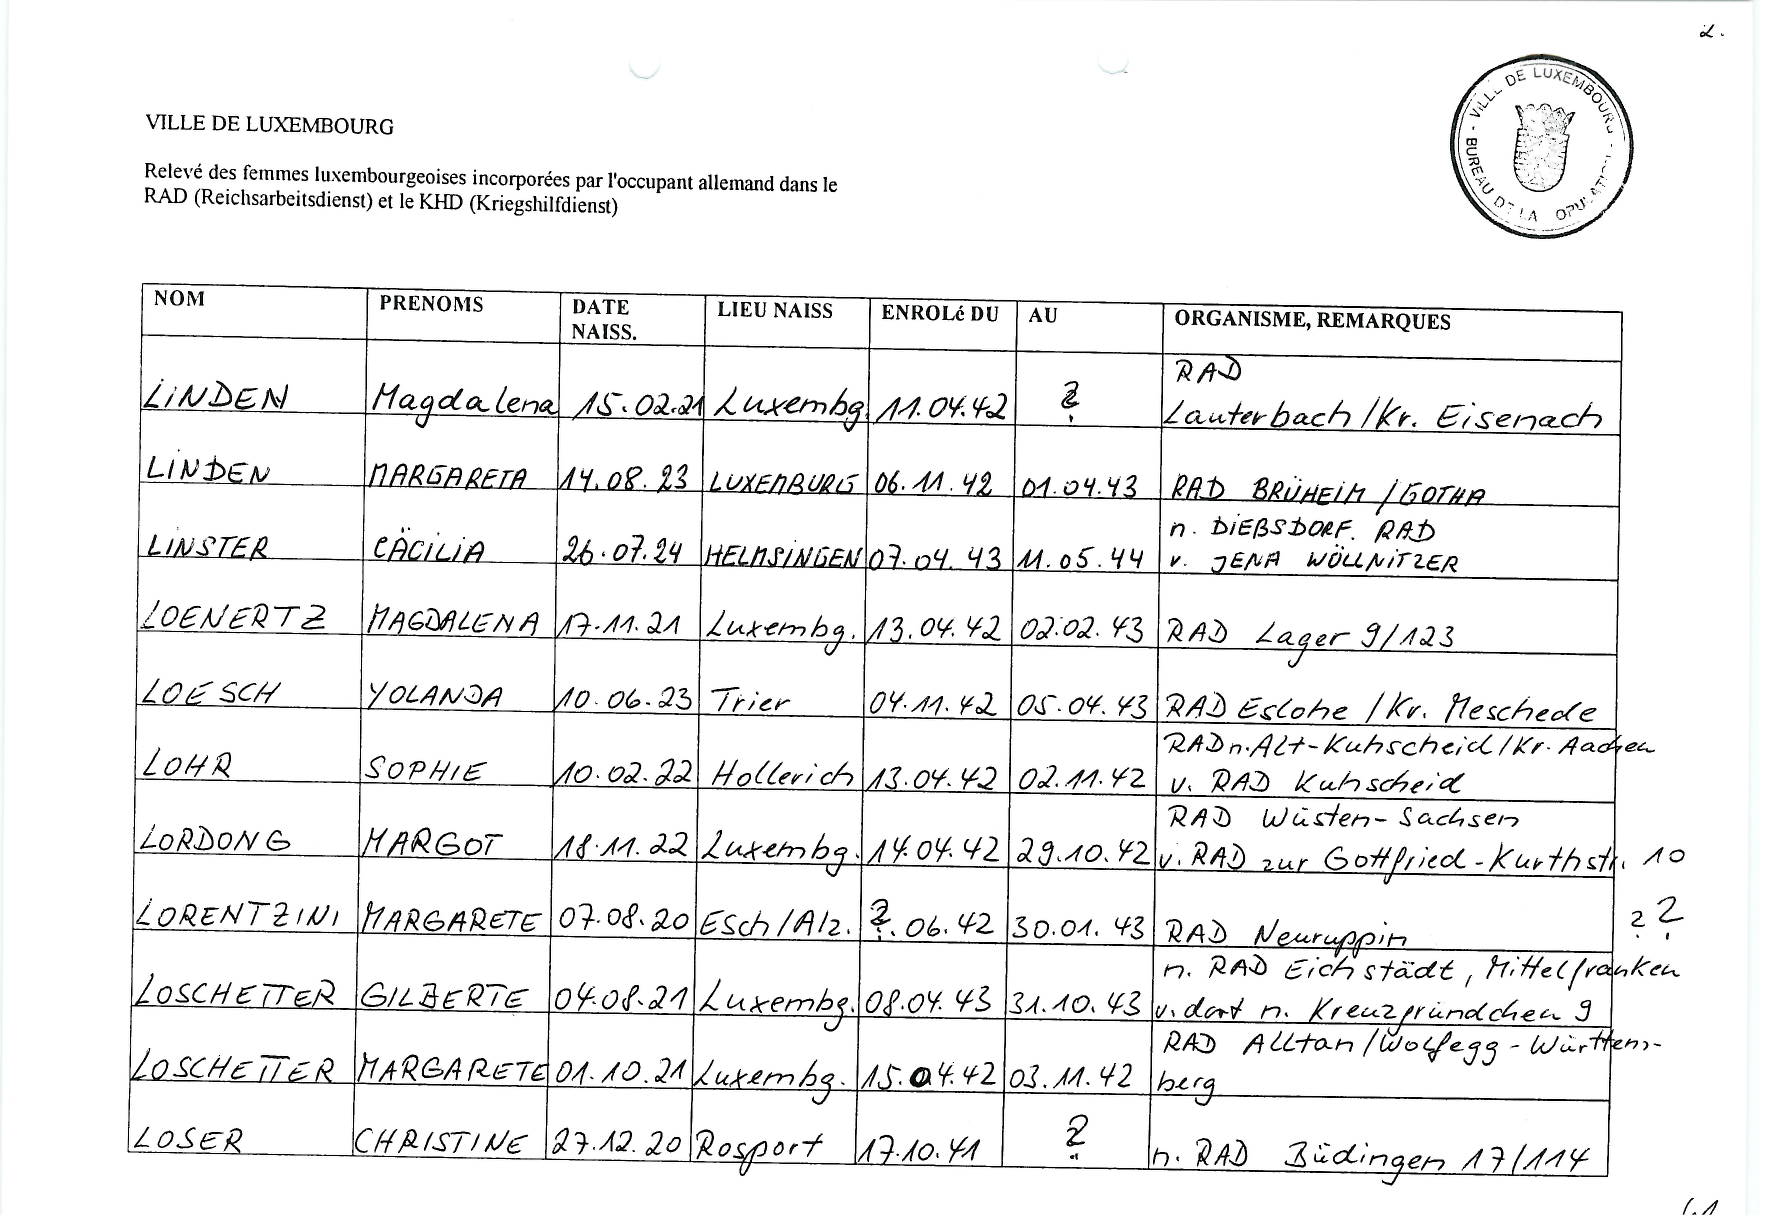 2.
VILLE DE LUXEMBOURG - BUREAU DE LA POPULATION -
VILLE DE LUXEMBOURG
Relevé des femmes luxembourgeoises incorporées par l'occupant allemand dans le
RAD (Reichsarbeitsdienst) et le KHD (Kriegshilfdienst)
NOM PRENOMS DATE NAISS. LIEU NAISS ENROLé DU AU ORGANISME, REMARQUES
RAD
LINDEN Magdalena 15.02.21 Luxembg. 11.04.42 ? Lauterbach/Kr. Eisenach
LINDEN MARGARETA 14.08.23 LUXEMBURG 06.11.42 01.04.43 RAD BRÜHEIM/GOTHA
n. DIEßSDORF. RAD
LINSTER CÄCILIA 26.07.24 HELMSINGEN 07.04.43 11.05.44 v. JENA WÖLLNITZER
LOENERTZ MAGDALENA 17.11.21 Luxembg. 13.04.42 02.02.43 RAD Lager 9/123
LOESCH YOLANDA 10.06.23 Trier 04.11.42 05.04.43 RAD Eslohe/Kr. Meschede
RAD n. Alt-Kuhscheid/Kr. Aachen
LOHR SOPHIE 10.02.22 Hollerich 13.04.42 02.11.42 v. RAD Kuhscheid
RAD Wüsten-Sachsen
LORDONG MARGOT 18.11.22 Luxembg. 14.04.42 29.10.42 v. RAD zur Gottfried-Kurthstr. 10
LORENTZINI MARGARETE 07.08.20 Esch/Alz. ?.06.42 30.01.43 RAD Neuruppin ? ?
n. RAD Eichstädt, Mittelfranken
LOSCHETTER GILBERTE 04.08.21 Luxembg. 08.04.43 31.10.43 v. dort n. Kreuzgründchen 9
RAD Alltan/Wolfegg-Württem-
LOSCHETTER MARGARETE 01.10.21 Luxembg. 15.04.42 03.11.42 berg
LOSER CHRISTINE 27.12.20 Rosport 17.10.41 ? n. RAD Büdingen 17/114